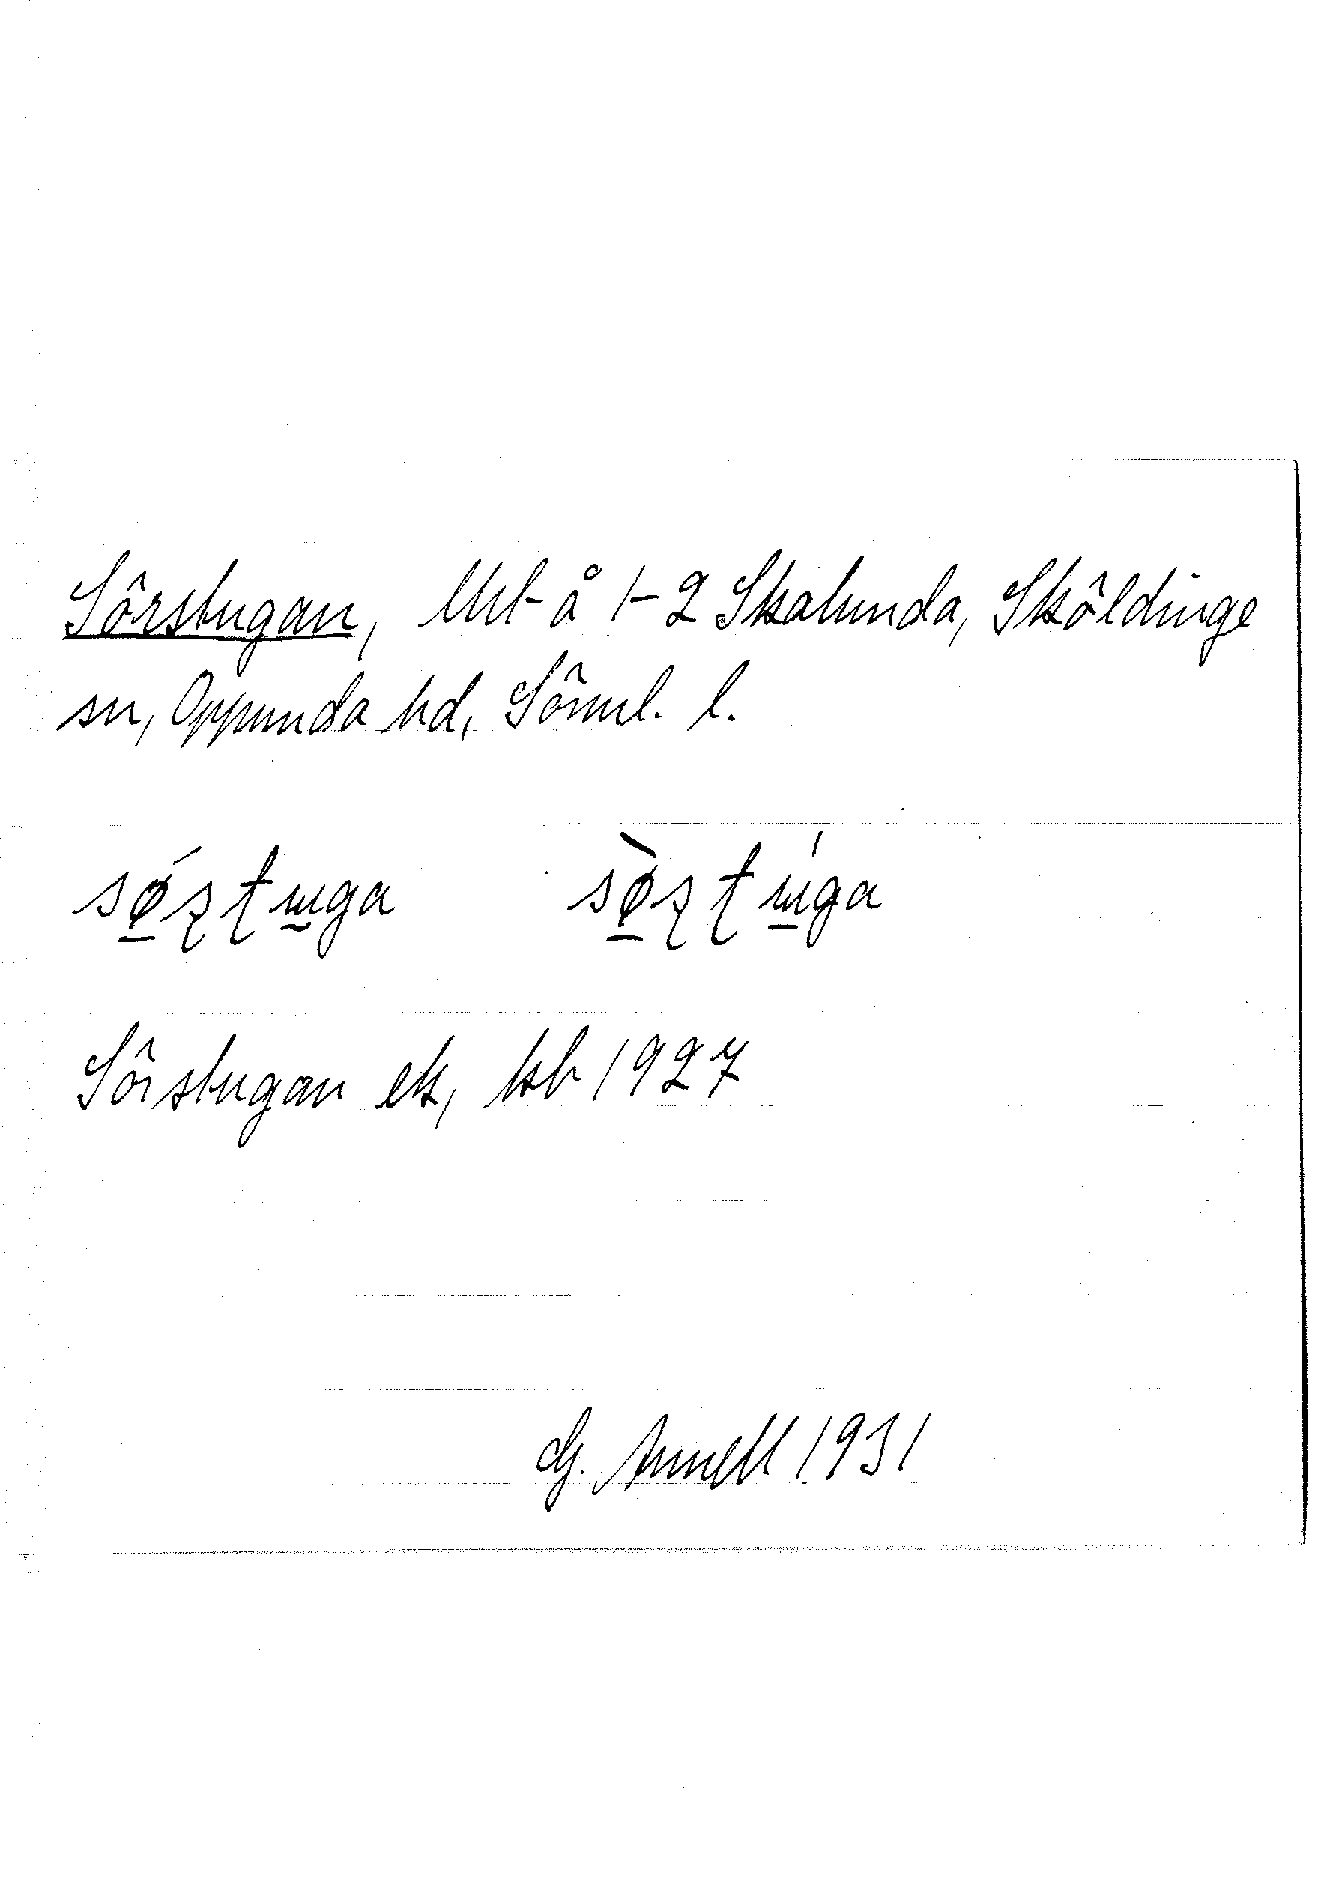 Sörstugan, Utt å 1-2 Skalunda, Sköldinge
sn, Oppunda hd, Söml. l.
sǿ̠ʂʈɯ̠ga sø̠̀ʂʈɯ̠́ga
Sörstugan ek, kb 1927
G. Annell 1931